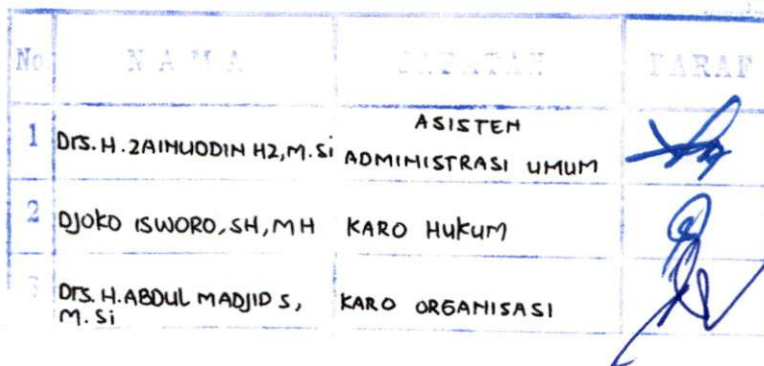 No N A M A JABATAN PARAF
1 Drs. H. ZAINUDDIN HZ, M. Si ASISTEN
ADMINISTRASI UMUM
2 DJOKO ISWORO, SH, MH KARO HUKUM
3 Drs. H. ABDUL MADJID S, KARO ORGANISASI
M. Si